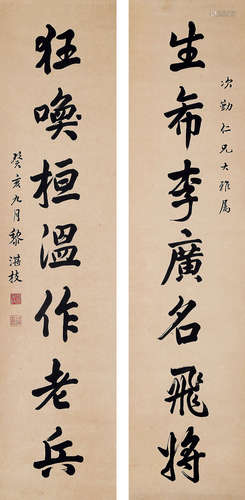 次勤仁兄大雅属
生希李廣名飛將
狂喚桓溫作老兵
癸亥九月黎湛枝